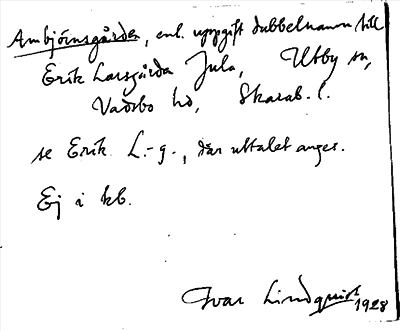 Ambjörnsgården, enl. uppgift dubbelnamn till
Erik Larsgården Jula, Utby sn,
Vadsbo hd, Skarab. l.
se Erik L.-g., där uttalet anges.
Ej i kb.
Ivar Lindquist
1928